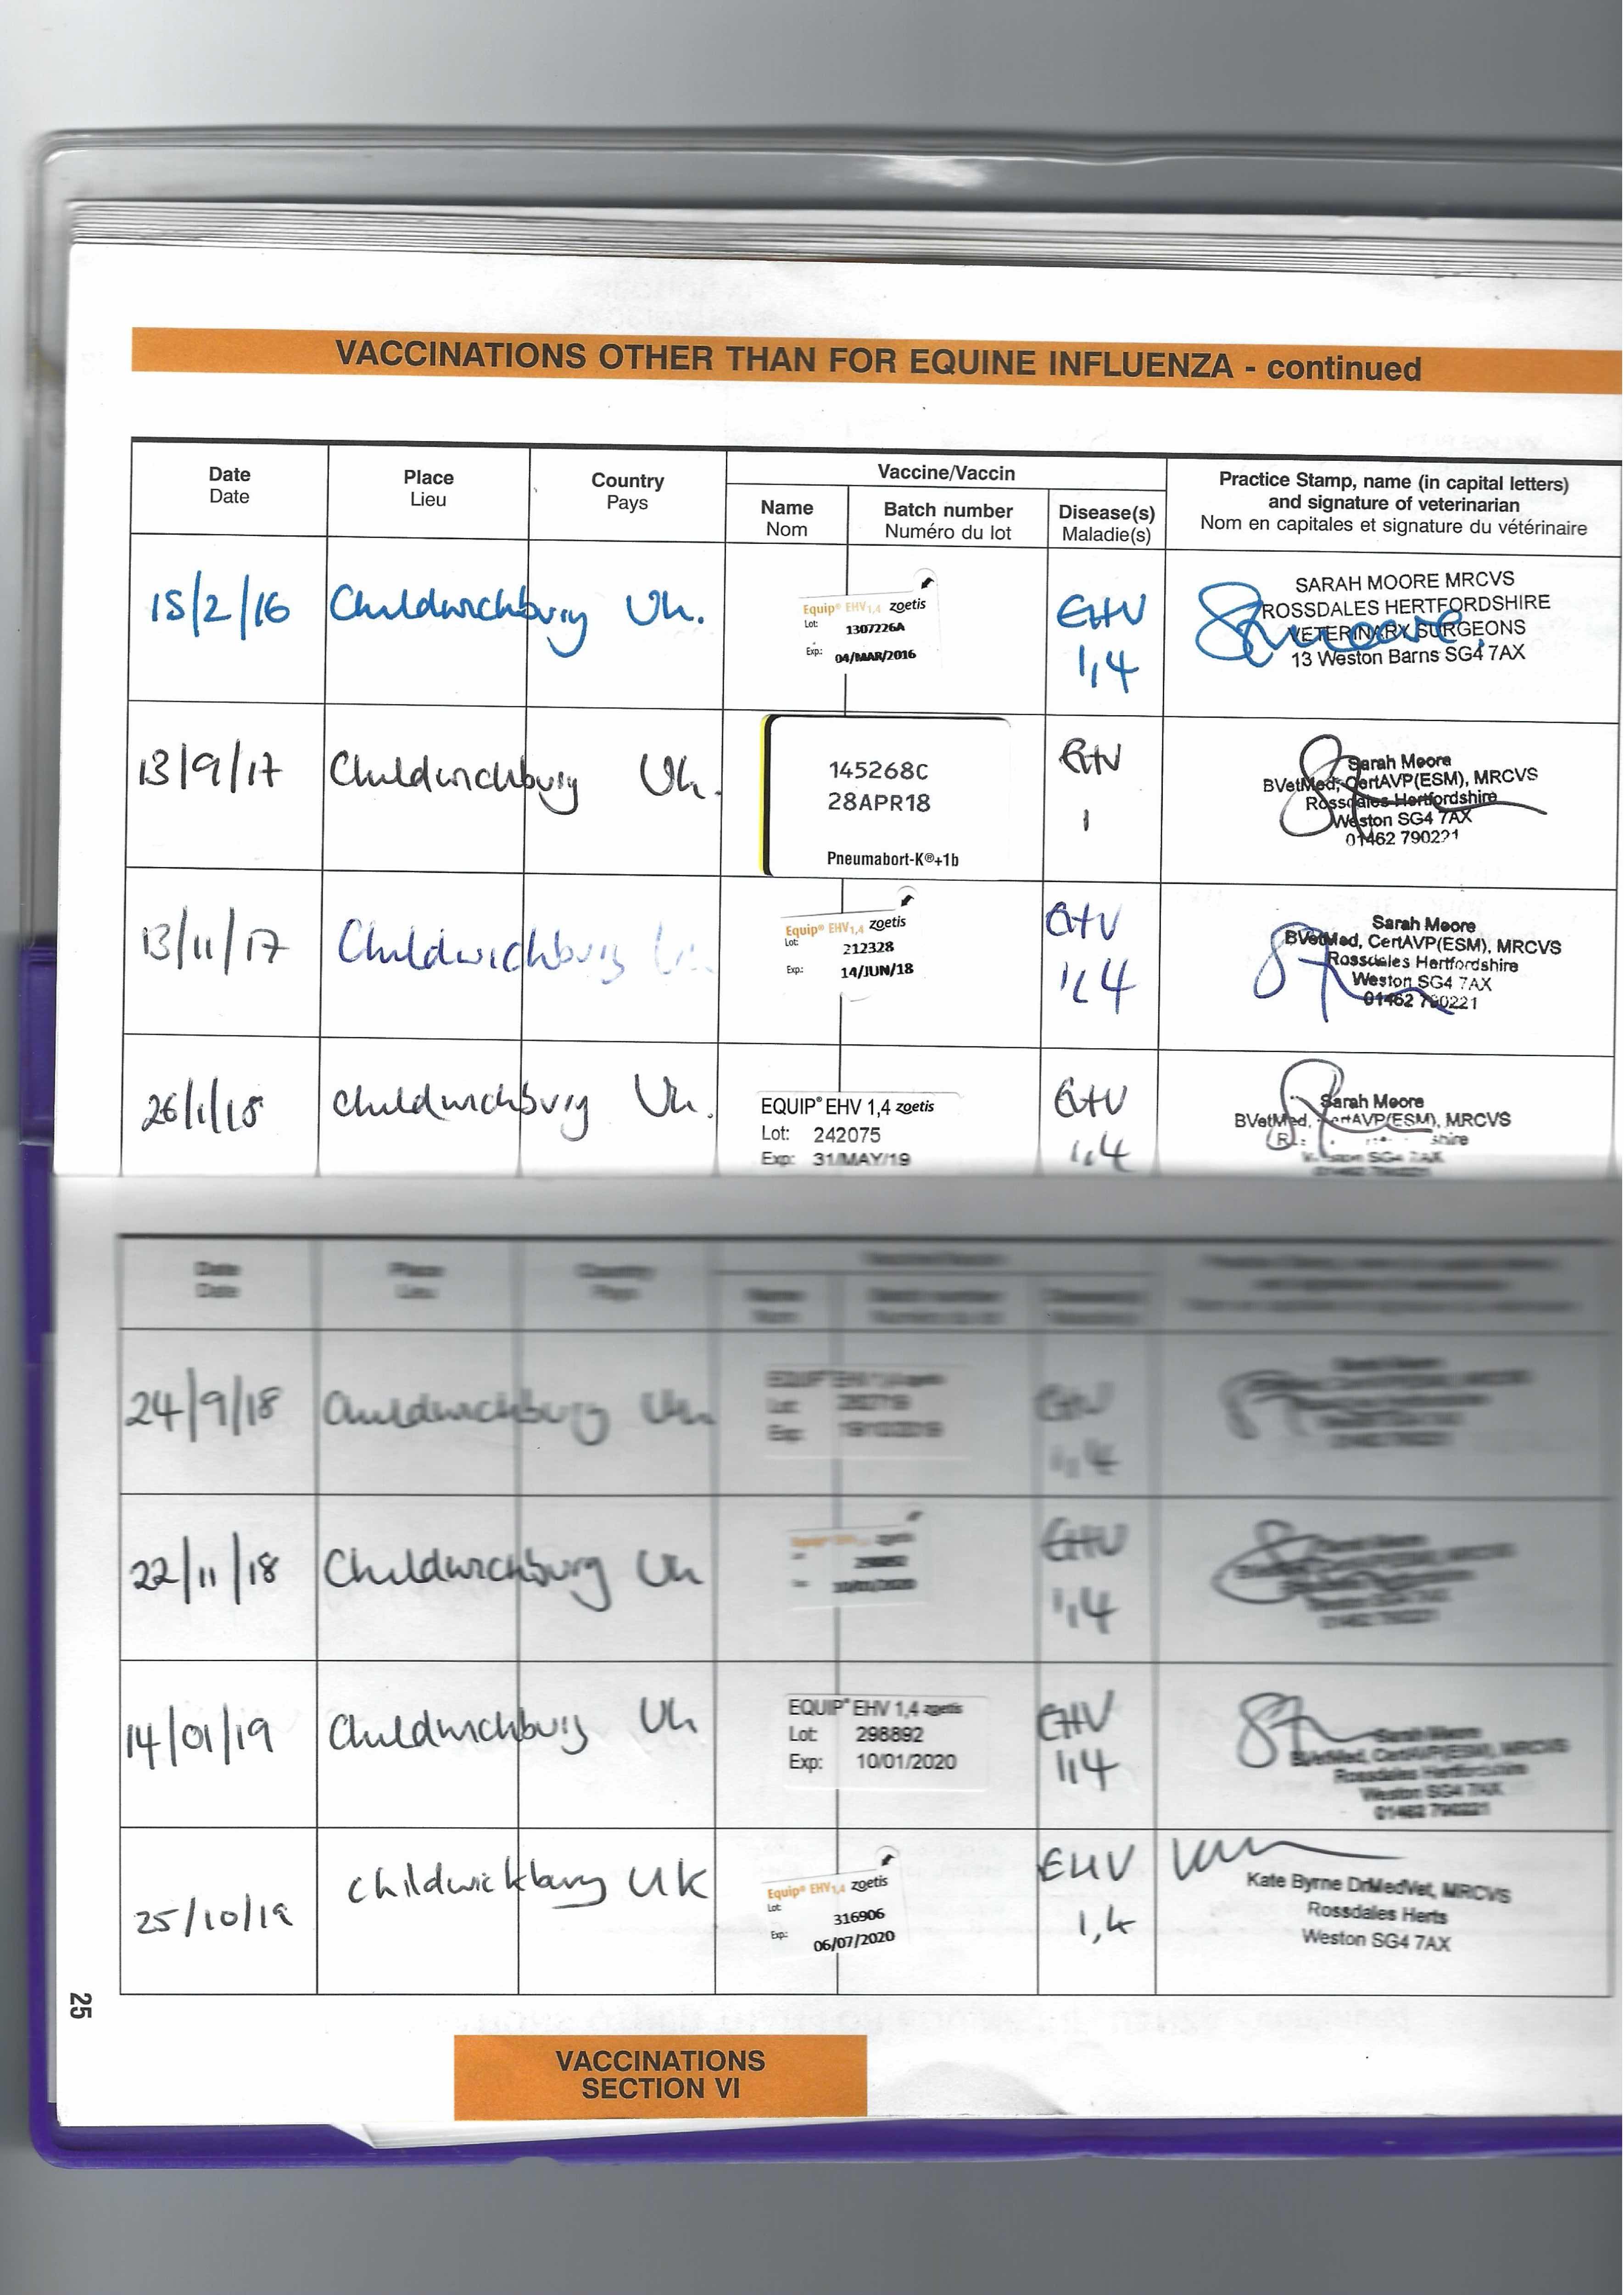 VACCINATIONS OTHER THAN FOR EQUINE INFLUENZA - continued
Date
Date
Place
Lieu
Country
Pays
Vaccine/Vaccin
Name
Nom
Batch number
Numéro du lot
Disease(s)
Maladie(s)
Practice Stamp, name (in capital letters)
and signature of veterinarian
Nom en capitales et signature du vétérinaire
15/2/16 Childwickbury Uk.
Equip® EHV1,4 zoetis
Lot: 1307226A
Exp: 04/MAR/2016
EHV
1,4
SARAH MOORE MRCVS
ROSSDALES HERTFORDSHIRE
VETERINARY SURGEONS
13 Weston Barns SG4 7AX
13/9/17 Childwickbury Uk.
145268C
28APR18
Pneumabort-K®+1b
EHV
1
Sarah Moore
BVetMed, CertAVP(ESM), MRCVS
Rossdales Hertfordshire
Weston SG4 7AX
01462 790221
13/11/17 Childwickbury
Equip® EHV1,4 zoetis
Lot: 212328
Exp: 14/JUN/18
EHV
1,4
Sarah Moore
BVetMed, CertAVP(ESM), MRCVS
Rossdales Hertfordshire
Weston SG4 7AX
01462 790221
26/1/18 Childwickbury Uk.
EQUIP® EHV 1,4 zoetis
Lot: 242075
Exp: 31/MAY/19
EHV
1,4
Sarah Moore
BVetMed, CertAVP(ESM), MRCVS
SG4 7AX
Date
Date
Place
Lieu
Country
Pays
Name
Nom
Batch number
Numéro du lot
24/9/18 Childwickbury Uk
EQUIP® EHV 1,4 zoetis
Lot:
Exp:
EHV
1,4
22/11/18 Childwickbury Uk
EHV
1,4
14/01/19 Childwickbury Uk
EQUIP® EHV 1,4 zoetis
Lot: 298892
Exp: 10/01/2020
EHV
1,4
Sarah Moore
BVetMed, CertAVP(ESM), MRCVS
Rossdales Hertfordshire
Weston SG4 7AX
01462 790221
25/10/19 Childwickbury UK
Equip® EHV1,4 zoetis
Lot: 316906
Exp: 06/07/2020
EHV
1,4
Kate Byrne DrMedVet, MRCVS
Rossdales Herts
Weston SG4 7AX
25
VACCINATIONS
SECTION VI